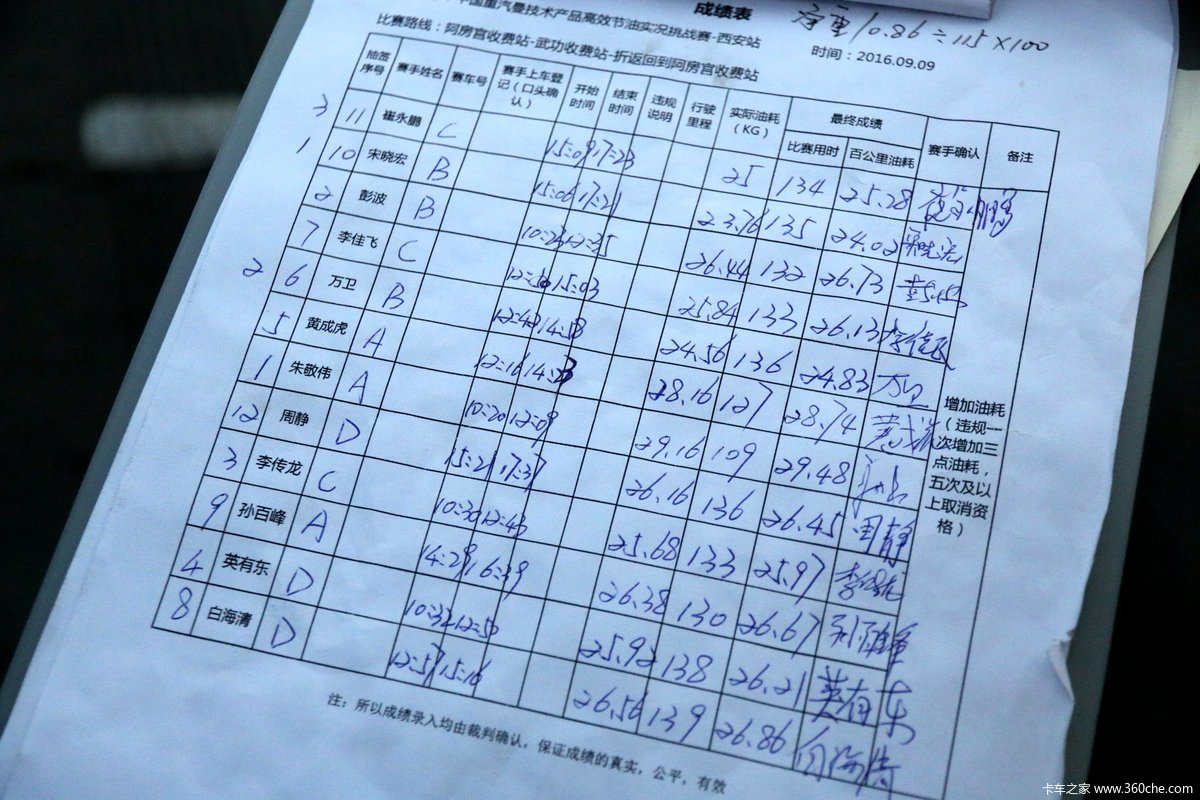 成绩表
中国重汽曼技术产品高效节油实况挑战赛-西安站
10.86÷115×100
比赛路线：阿房宫收费站-武功收费站-折返回到阿房宫收费站
时间：2016.09.09
抽签序号 赛手姓名 赛车号 赛手上车登记（口头确认） 开始时间 结束时间 违规说明 行驶里程 实际油耗（KG） 最终成绩 比赛用时 百公里油耗 赛手确认 备注
3 11 崔永鹏 C 15:09 17:23 25 134 25.28 崔永鹏
1 10 宋晓宏 B 15:06 17:21 23.76 135 24.02
2 彭波 B 10:23 12:35 26.44 132 26.73 彭波
7 李佳飞 C 12:50 15:03 25.84 133 26.13 李佳飞
2 6 万卫 B 12:42 14:58 24.56 136 24.83 万卫
5 黄成虎 A 12:16 14:23 28.16 127 28.74 黄成虎
1 朱敬伟 A 10:20 12:09 29.16 109 29.48
12 周静 D 15:21 17:37 26.16 136 26.45 周静
3 李传龙 C 10:30 12:43 25.68 133 25.97 李传龙
9 孙百峰 A 14:29 16:39 26.38 130 26.67
4 英有东 D 10:32 12:50 25.92 138 26.21 英有东
8 白海清 D 12:57 15:16 26.56 139 26.86 白海清
增加油耗（违规一次增加三点油耗，五次及以上取消资格）
注：所以成绩录入均由裁判确认，保证成绩的真实，公平，有效
卡车之家 www.360che.com